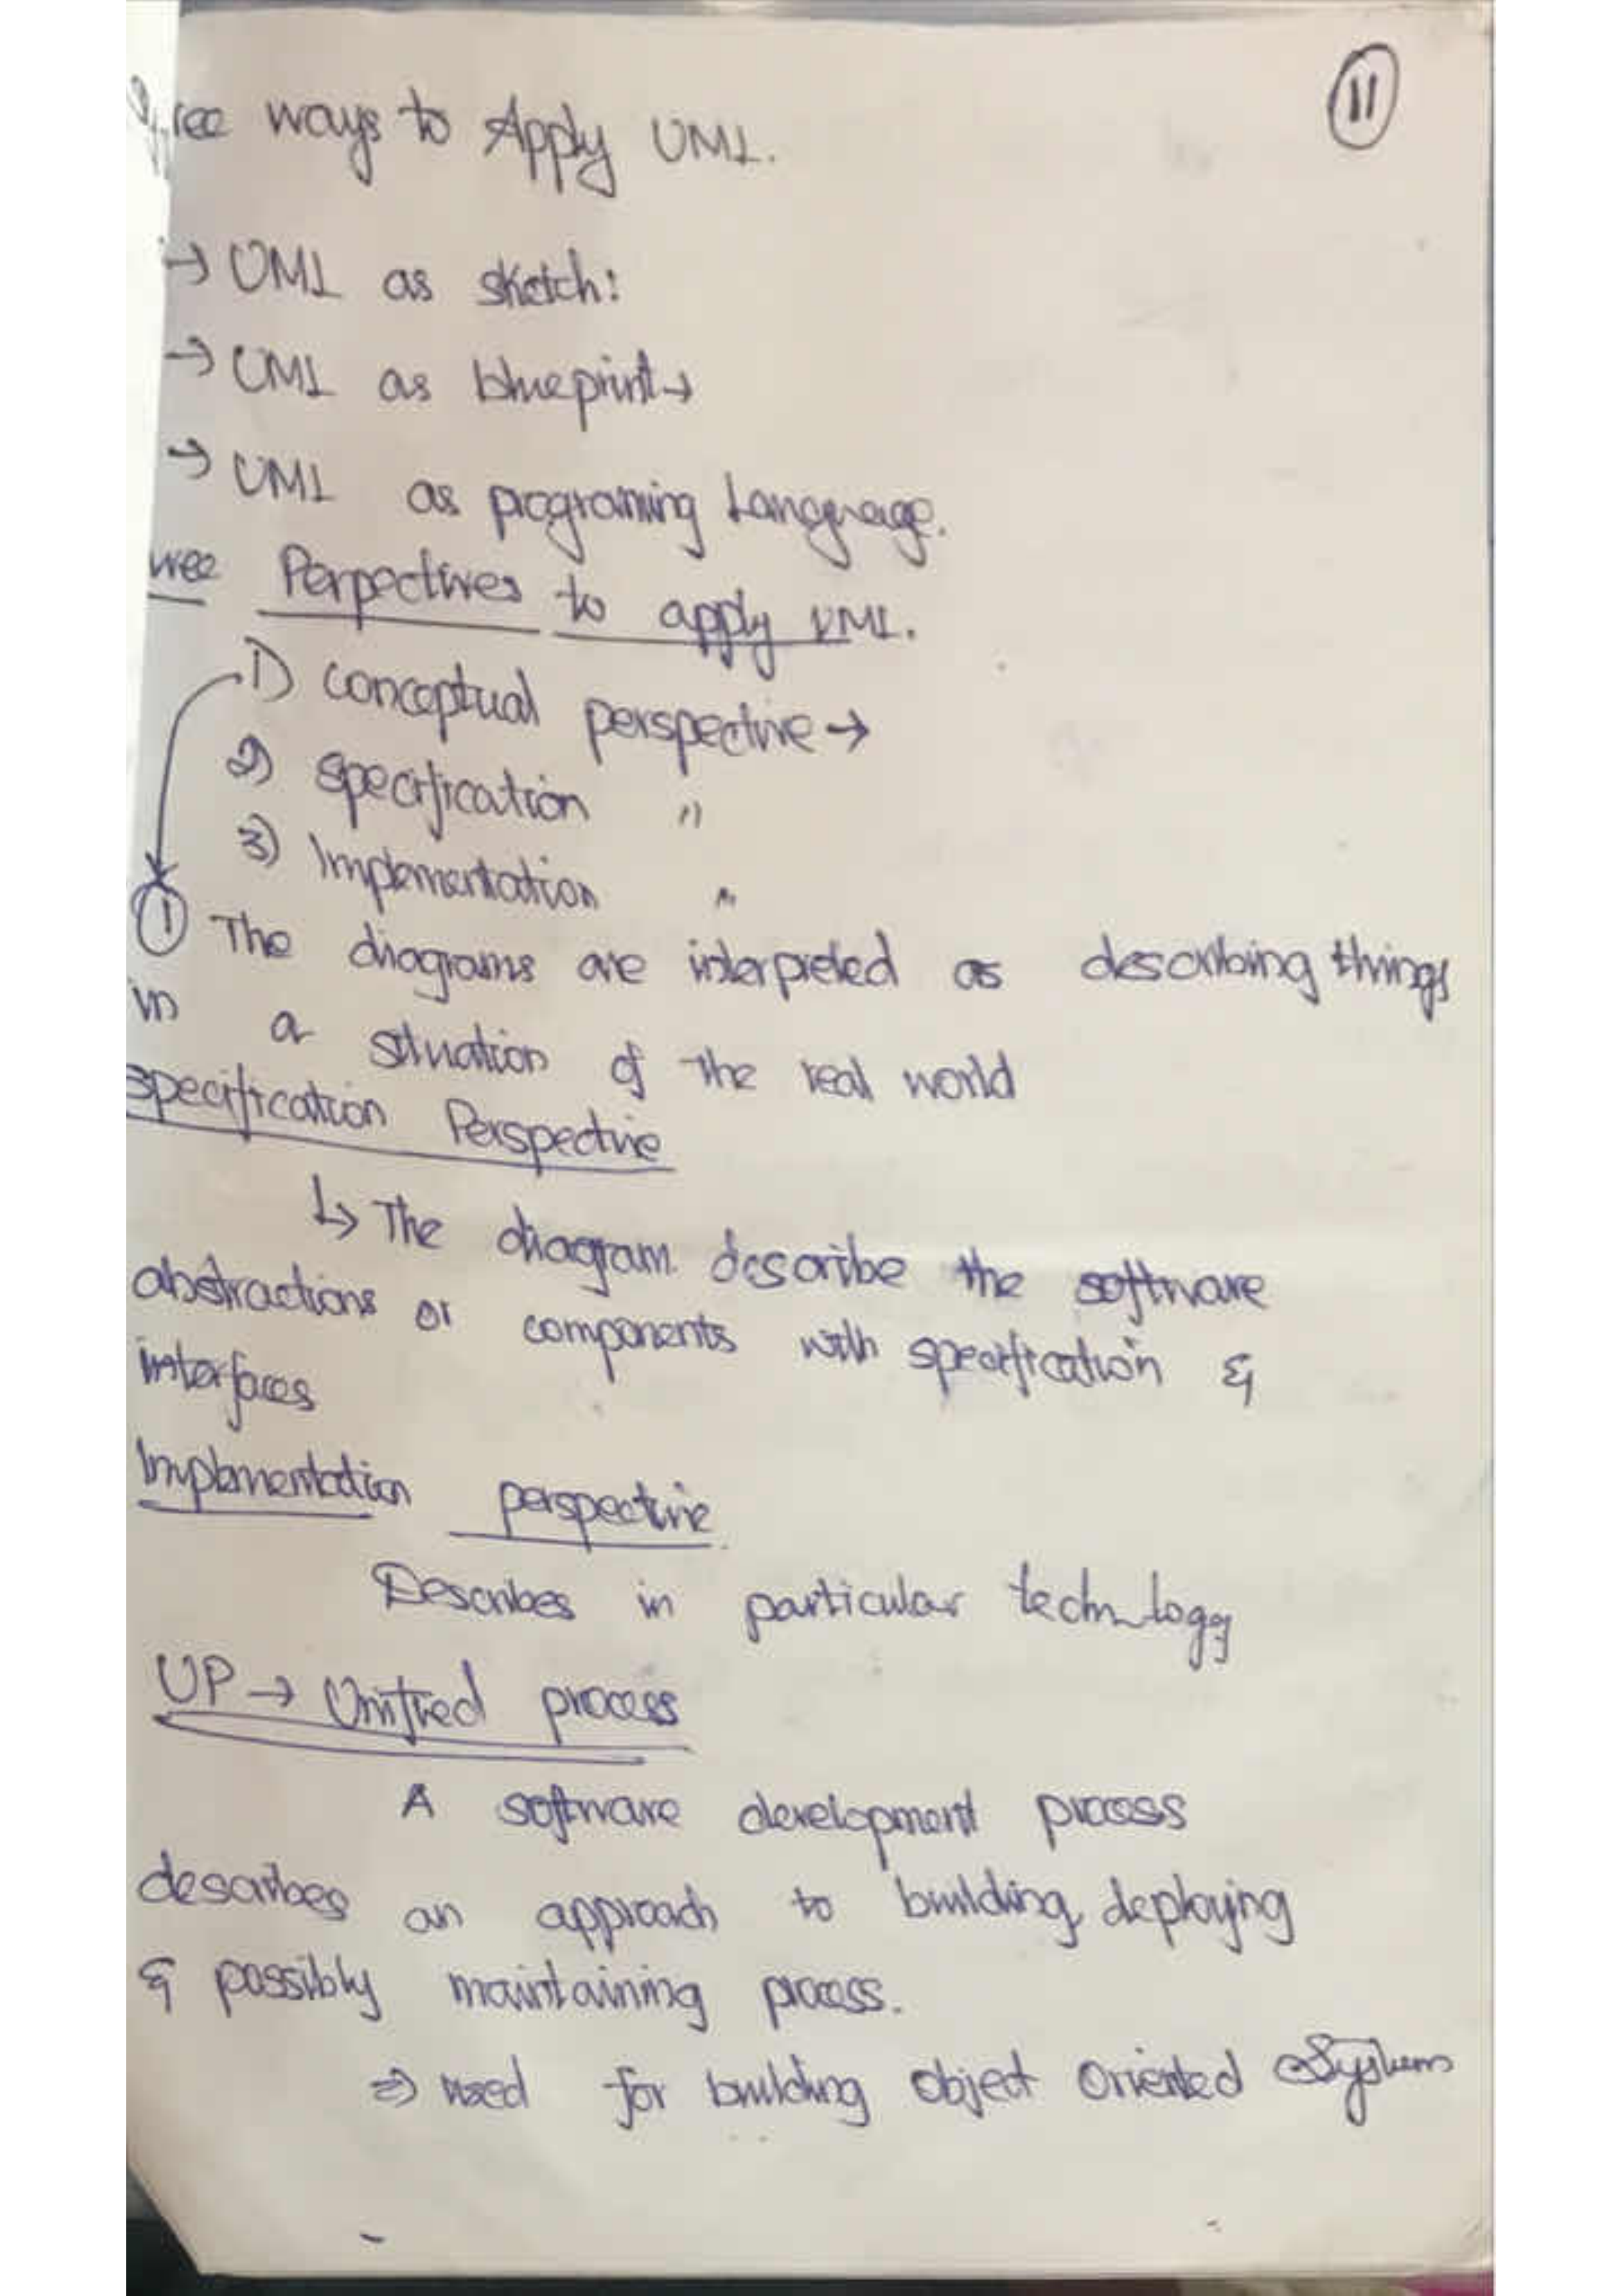 11
Three ways to Apply UML.
→ UML as sketch:
→ UML as blueprint→
→ UML as programing Language.
three Perpectives to apply UML.
1) conceptual perspective →
2) specification "
3) Implementation "
① The diagrams are interpreted as describing things
in a situation of the real world
specification Perspective
↳ The diagram describe the software
abstractions or components with specification &
interfaces
Implementation perspective.
Describes in particular technology
UP → Unified process
A software development process
describes an approach to building, deploying
& possibly maintaining process.
⇒ used for building object Oriented System